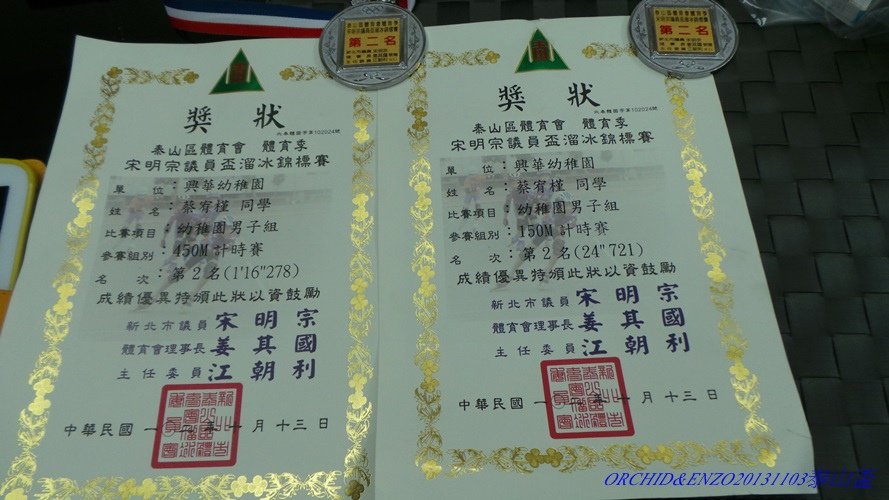 第二名
獎 狀
北泰體育字第102024號
泰山區體育會 體育季
宋明宗議員盃溜冰錦標賽
單 位：興華幼稚園
姓 名：蔡宥槿 同學
比賽項目：幼稚園男子組
參賽組別：450M計時賽
名 次：第2名(1'16"278)
成績優異特頒此狀以資鼓勵
新北市議員 宋明宗
體育會理事長 姜其國
主任委員 江朝利
中華民國一〇二年 月十三日
第二名
獎 狀
北泰體育字第102024號
泰山區體育會 體育季
宋明宗議員盃溜冰錦標賽
單 位：興華幼稚園
姓 名：蔡宥槿 同學
比賽項目：幼稚園男子組
參賽組別：150M計時賽
名 次：第2名(24"721)
成績優異特頒此狀以資鼓勵
新北市議員 宋明宗
體育會理事長 姜其國
主任委員 江朝利
中華民國一〇二年 月十三日
ORCHID&ENZO20131103泰山盃